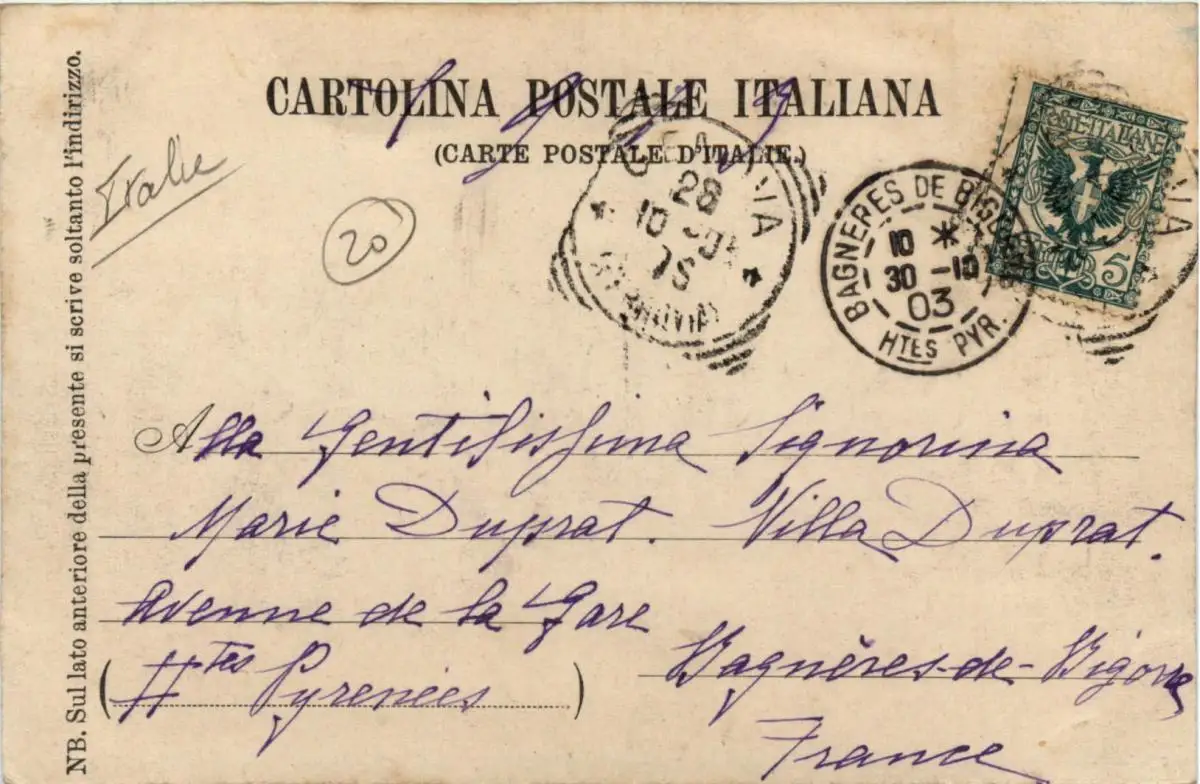 NB. Sul lato anteriore della presente si scrive soltanto l'indirizzo.
CARTOLINA POSTALE ITALIANA
(CARTE POSTALE D'ITALIE.)
Italie
20
28
10
BAGNERES DE BIGORRE
10 *
30 -10
03
HTES PYR.
POSTE·ITALIANE
5
Alla Gentilissima Signorina
Marie Duprat. Villa Duprat.
Avenue de la Gare
Bagnères-de-Bigorre
(Htes Pyrenées)
France